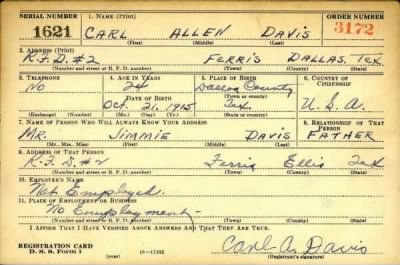 SERIAL NUMBER 1. NAME (Print) ORDER NUMBER
1621 CARL ALLEN DAVIS 3172
(First) (Middle) (Last)
2. ADDRESS (Print)
R.F.D. #2 FERRIS DALLAS, TEX
(Number and street or R. F. D. number) (Town) (County) (State)
3. TELEPHONE 4. AGE IN YEARS 5. PLACE OF BIRTH 6. COUNTRY OF CITIZENSHIP
NO 24 Dallas County U.S.A.
DATE OF BIRTH (Town or county)
Oct. 21, 1915 Tex
(Exchange) (Number) (Mo.) (Day) (Yr.) (State or country)
7. NAME OF PERSON WHO WILL ALWAYS KNOW YOUR ADDRESS 8. RELATIONSHIP OF THAT PERSON
MR. JIMMIE DAVIS FATHER
(Mr., Mrs., Miss) (First) (Middle) (Last)
9. ADDRESS OF THAT PERSON
R.F.D. #2 Ferris Ellis Tex
(Number and street or R. F. D. number) (Town) (County) (State)
10. EMPLOYER'S NAME
Not Employed.
11. PLACE OF EMPLOYMENT OR BUSINESS
No Employment
(Number and street or R. F. D. number) (Town) (County) (State)
I AFFIRM THAT I HAVE VERIFIED ABOVE ANSWERS AND THAT THEY ARE TRUE.
REGISTRATION CARD
D. S. S. Form 1 (over) Carl A. Davis
(Registrant's signature)